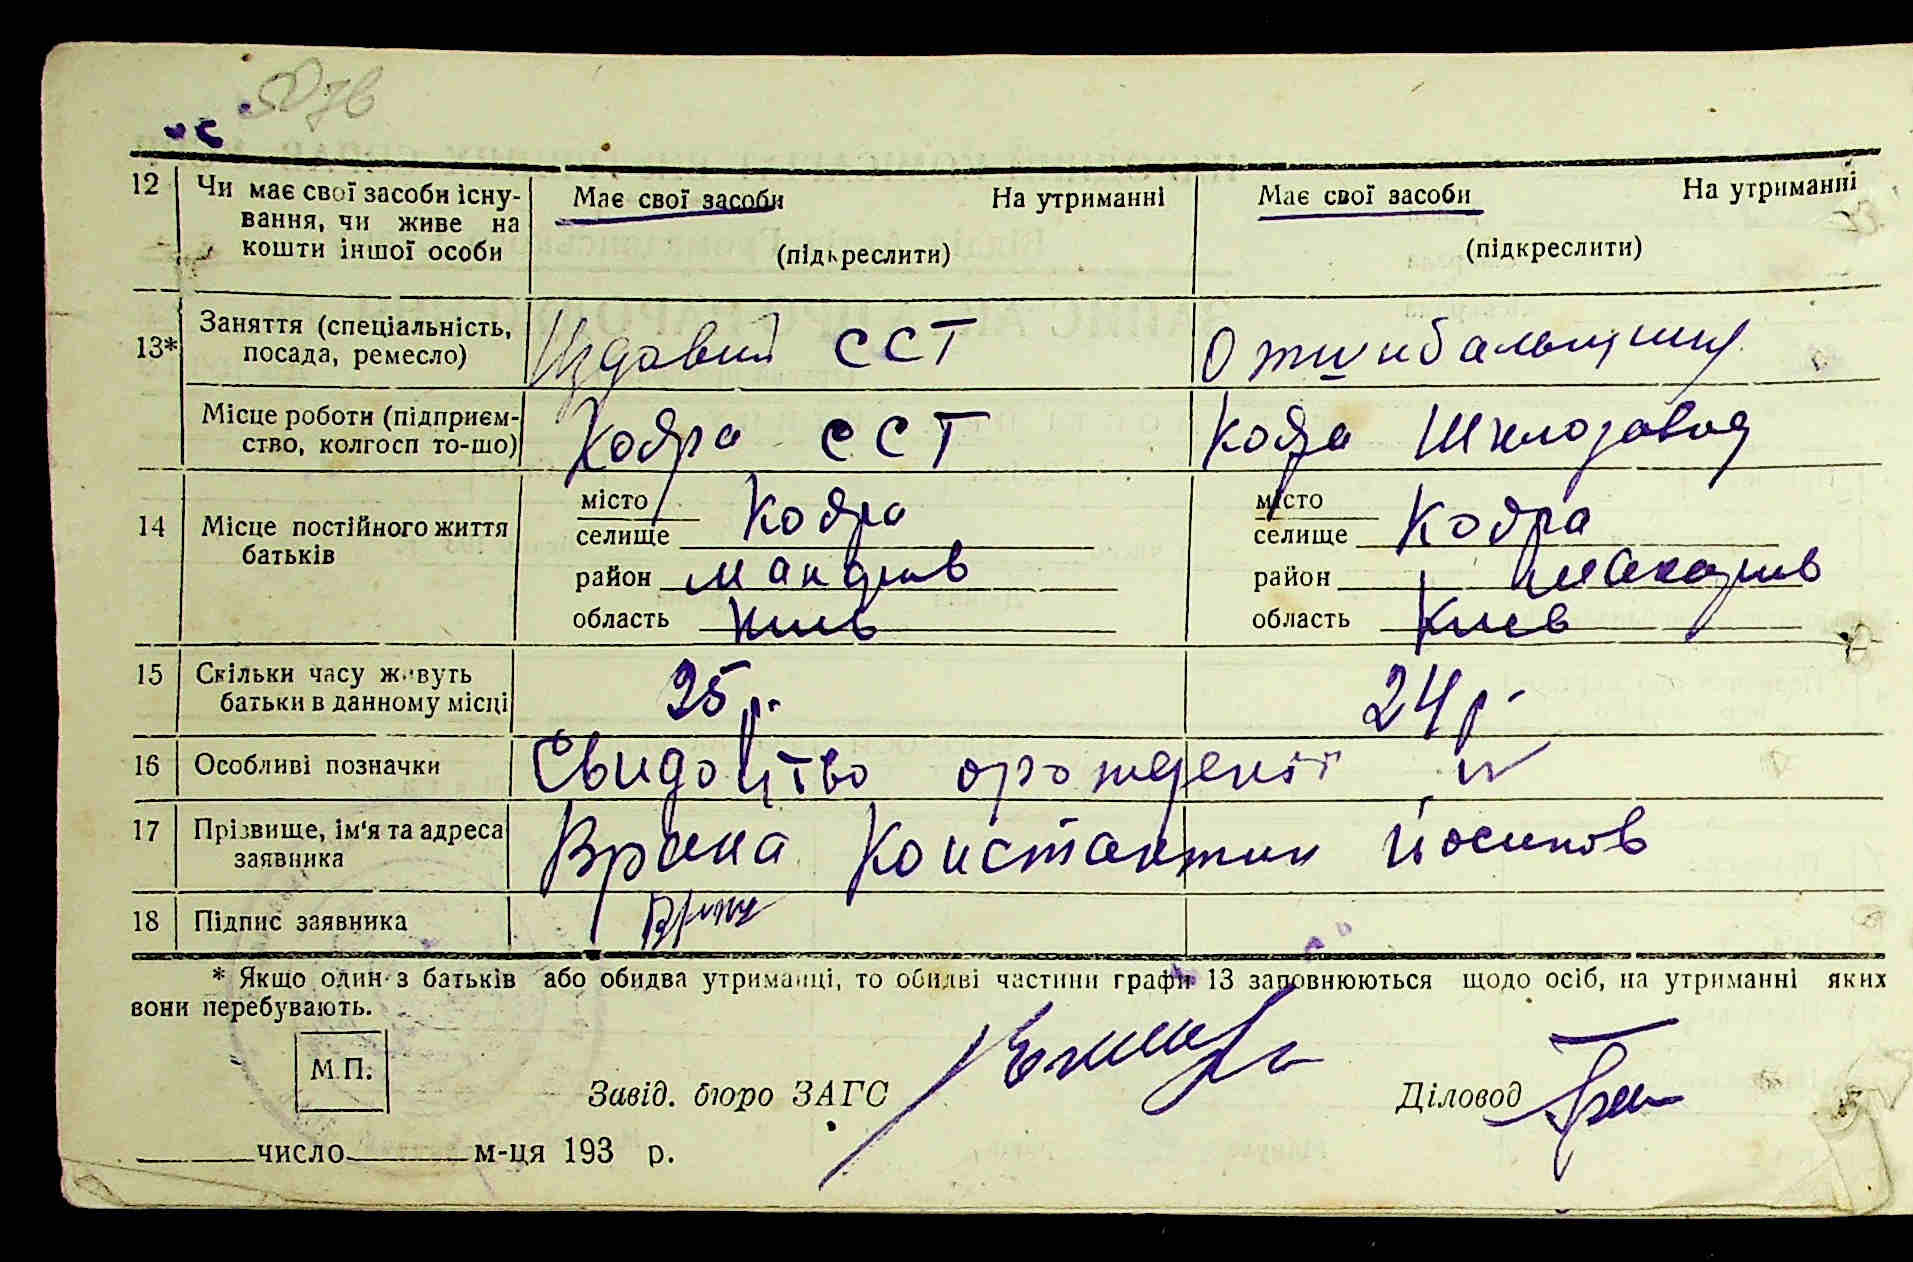 12 Чи має свої засоби існу- Має свої засоби На утриманні Має свої засоби На утриманні
вання, чи живе на
кошти іншої особи (підкреслити) (підкреслити)
13* Заняття (спеціальність, ССТ
посада, ремесло)
Місце роботи (підприєм- Кодра ССТ Кодра Шклозавод
ство, колгосп то-що)
14 Місце постійного життя місто місто
батьків селище Кодра селище Кодра
район район Макарив
область Киів область Киев
15 Скільки часу живуть 25 р. 24 р.
батьки в данному місці
16 Особливі позначки Свидоцтво
17 Прізвище, ім'я та адреса Константин Йосипов
заявника
18 Підпис заявника
* Якщо один з батьків або обидва утриманці, то обидві частини графи 13 заповнюються щодо осіб, на утриманні яких
вони перебувають.
М.П.
Завід. бюро ЗАГС Діловод
число м-ця 193 р.